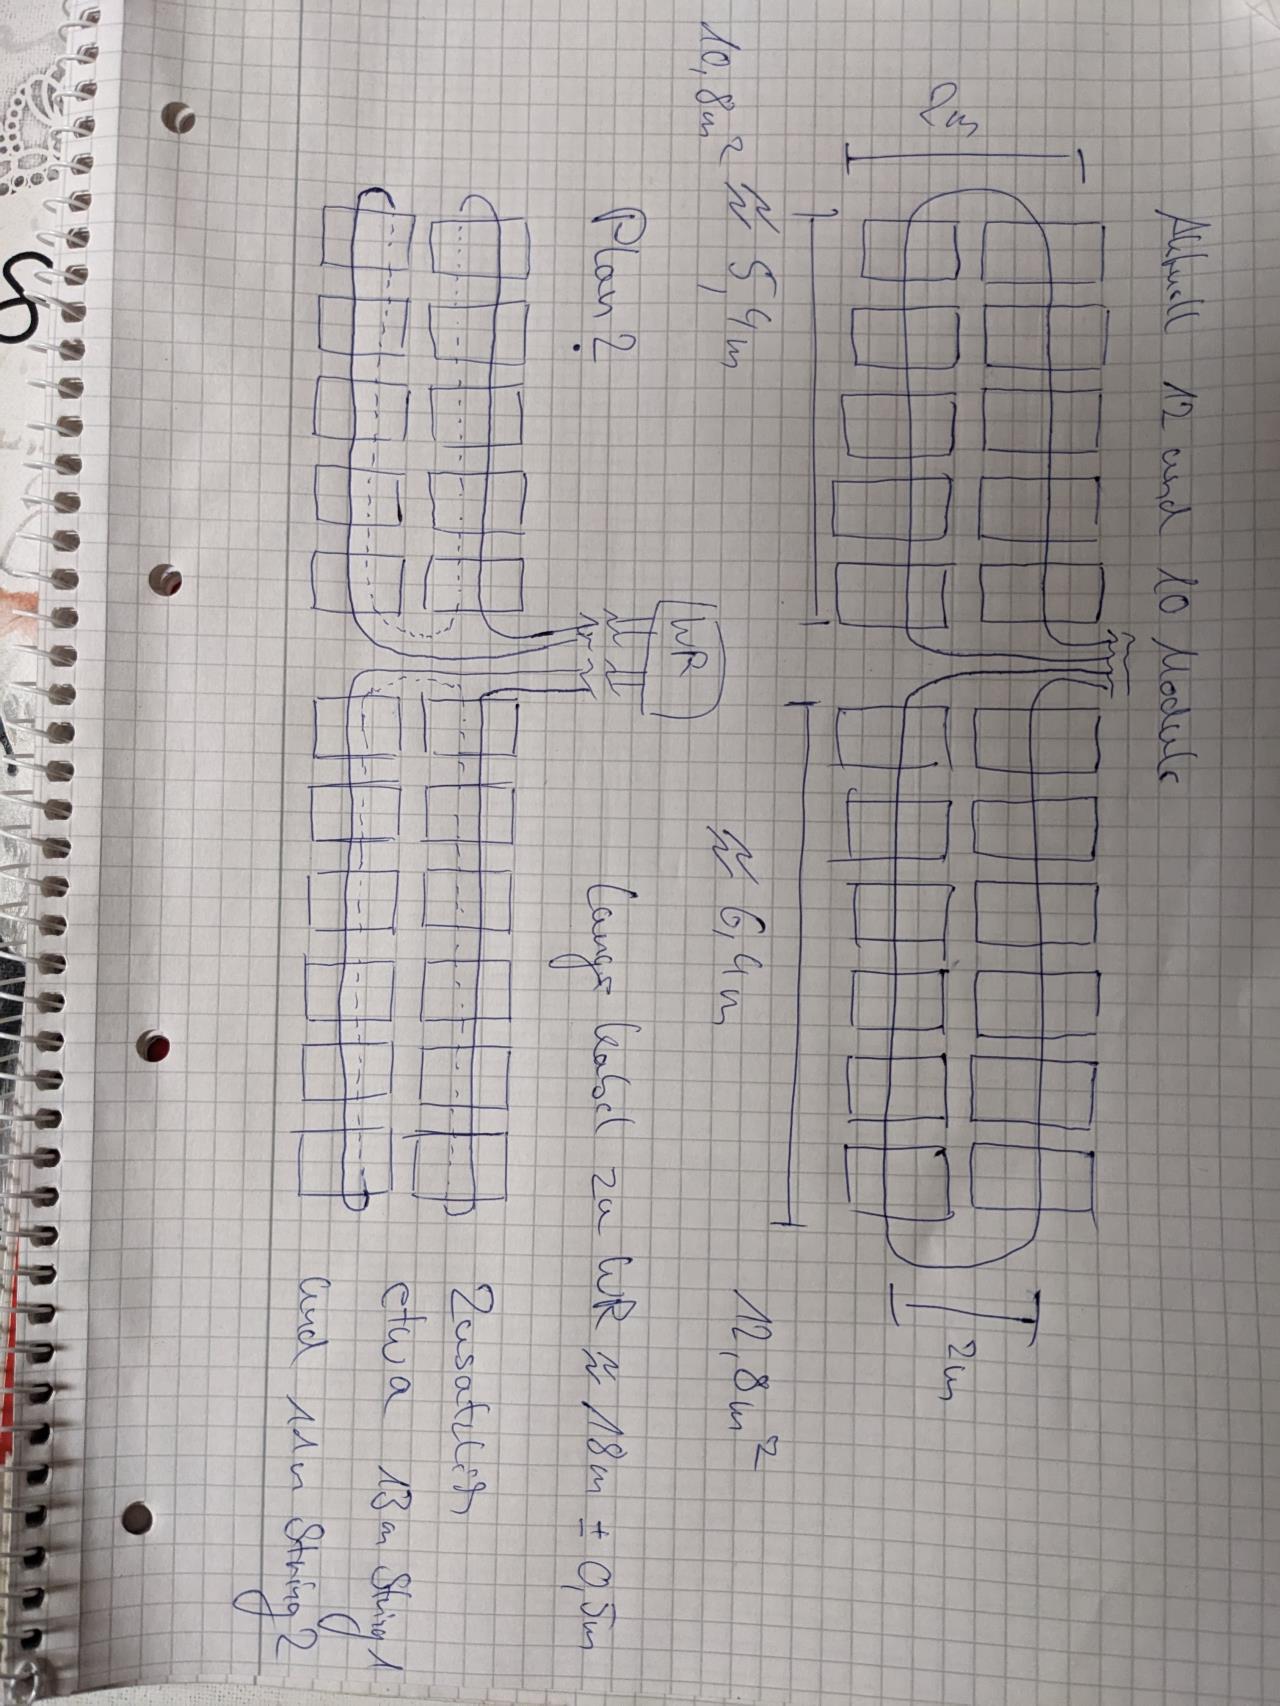 Aktuell 12 und 10 Module
2m
2m
10,8m² ≈ 5,4m
≈ 6,4m
12,8m²
WR
Plan 2
Lange Kabel zu WR ≈ 18m ± 0,5m
Zusätzlich
etwa 13m String 1
und 11m String 2